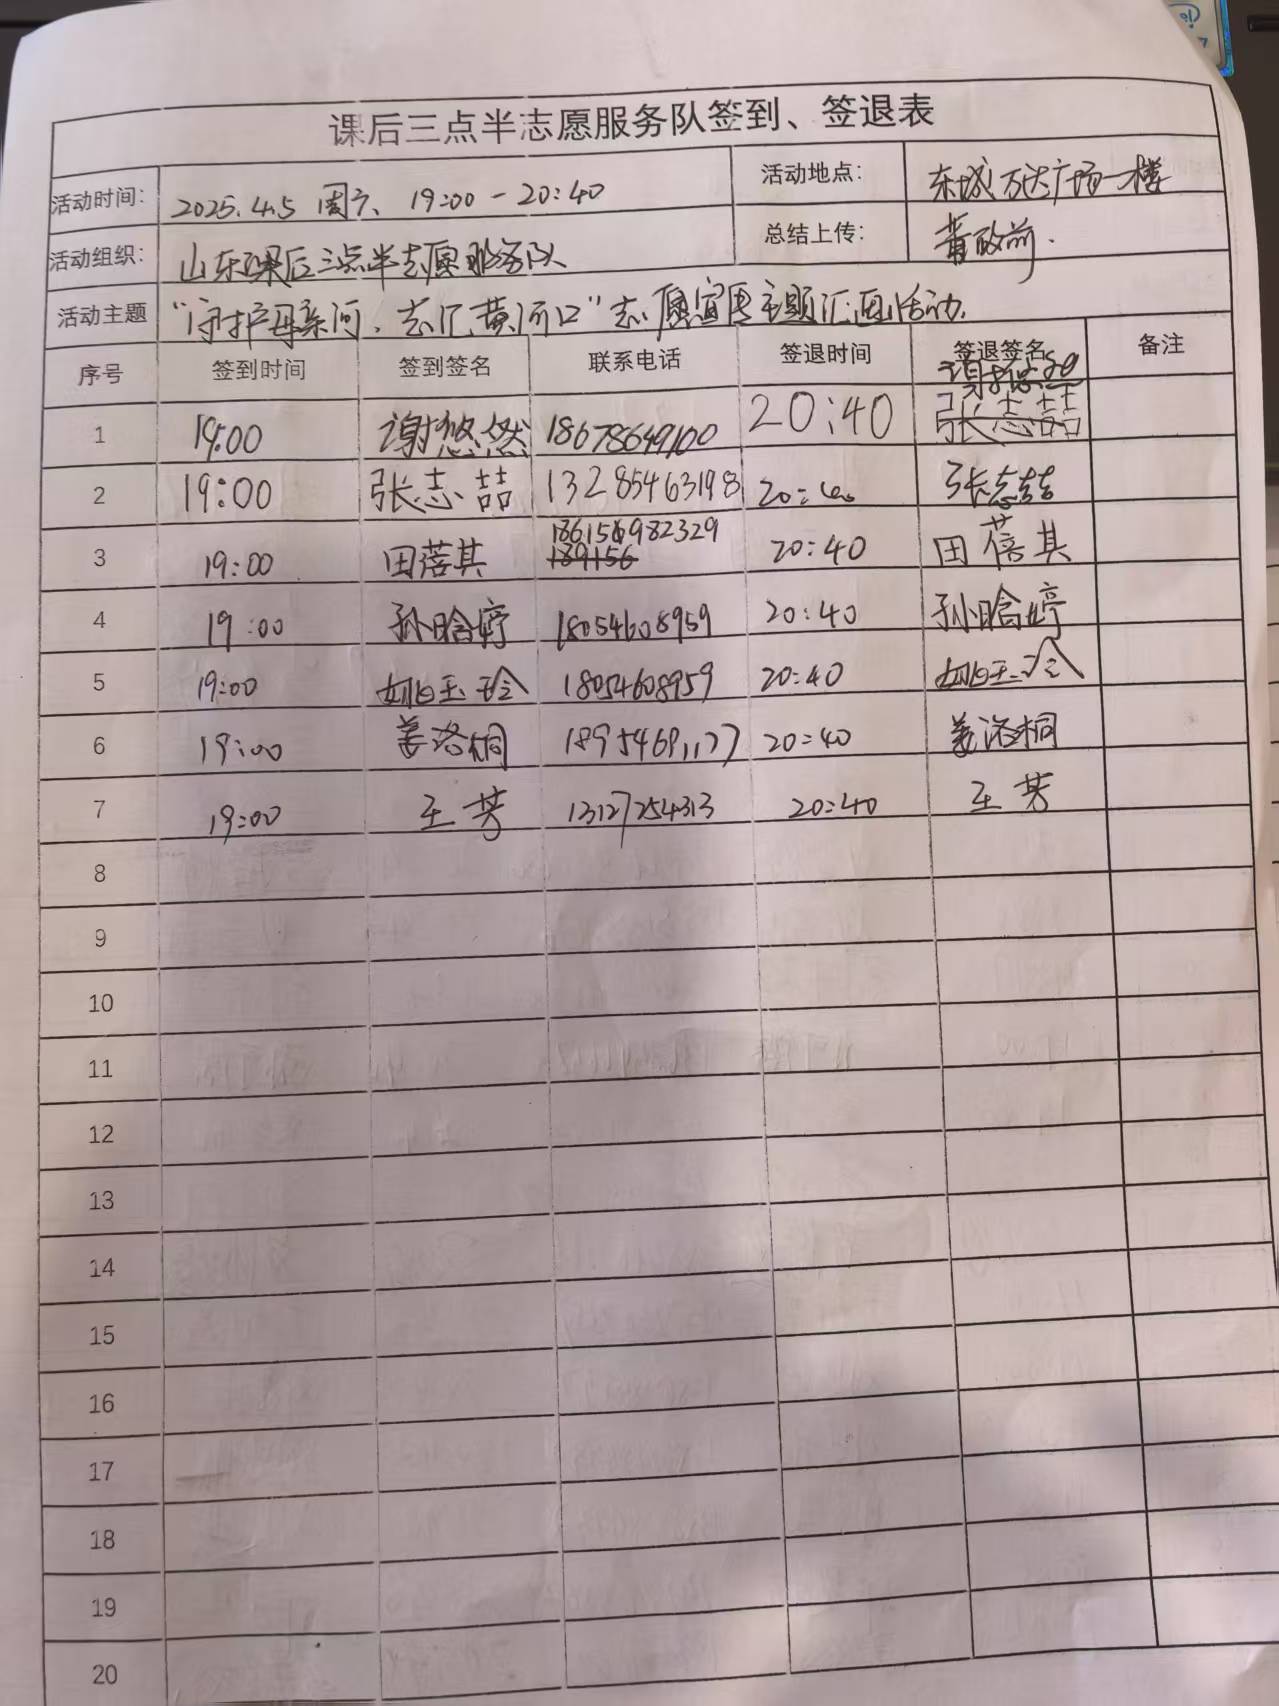 课后三点半志愿服务队签到、签退表
活动时间: 2025.4.5 周六 19:00-20:40 活动地点: 东城万达广场一楼
活动组织: 山东课后三点半志愿服务队 总结上传:
活动主题 "守护母亲河,志汇黄河口"志愿宣传主题汇画活动
序号 签到时间 签到签名 联系电话 签退时间 签退签名 备注
谢悠然
1 19:00 谢悠然 18678649100 20:40 张志喆
2 19:00 张志喆 13285463198 张志喆
3 19:00 田蓓其 20:40 田蓓其
189156
4 19:00 孙晗婷 18054608959 20:40 孙晗婷
5 19:00 姚玉玲 18054608959 20:40 姚玉玲
6 19:00 姜洛桐 20:40 姜洛桐
7 19:00 王芳 13127254313 20:40 王芳
8
9
10
11
12
13
14
15
16
17
18
19
20